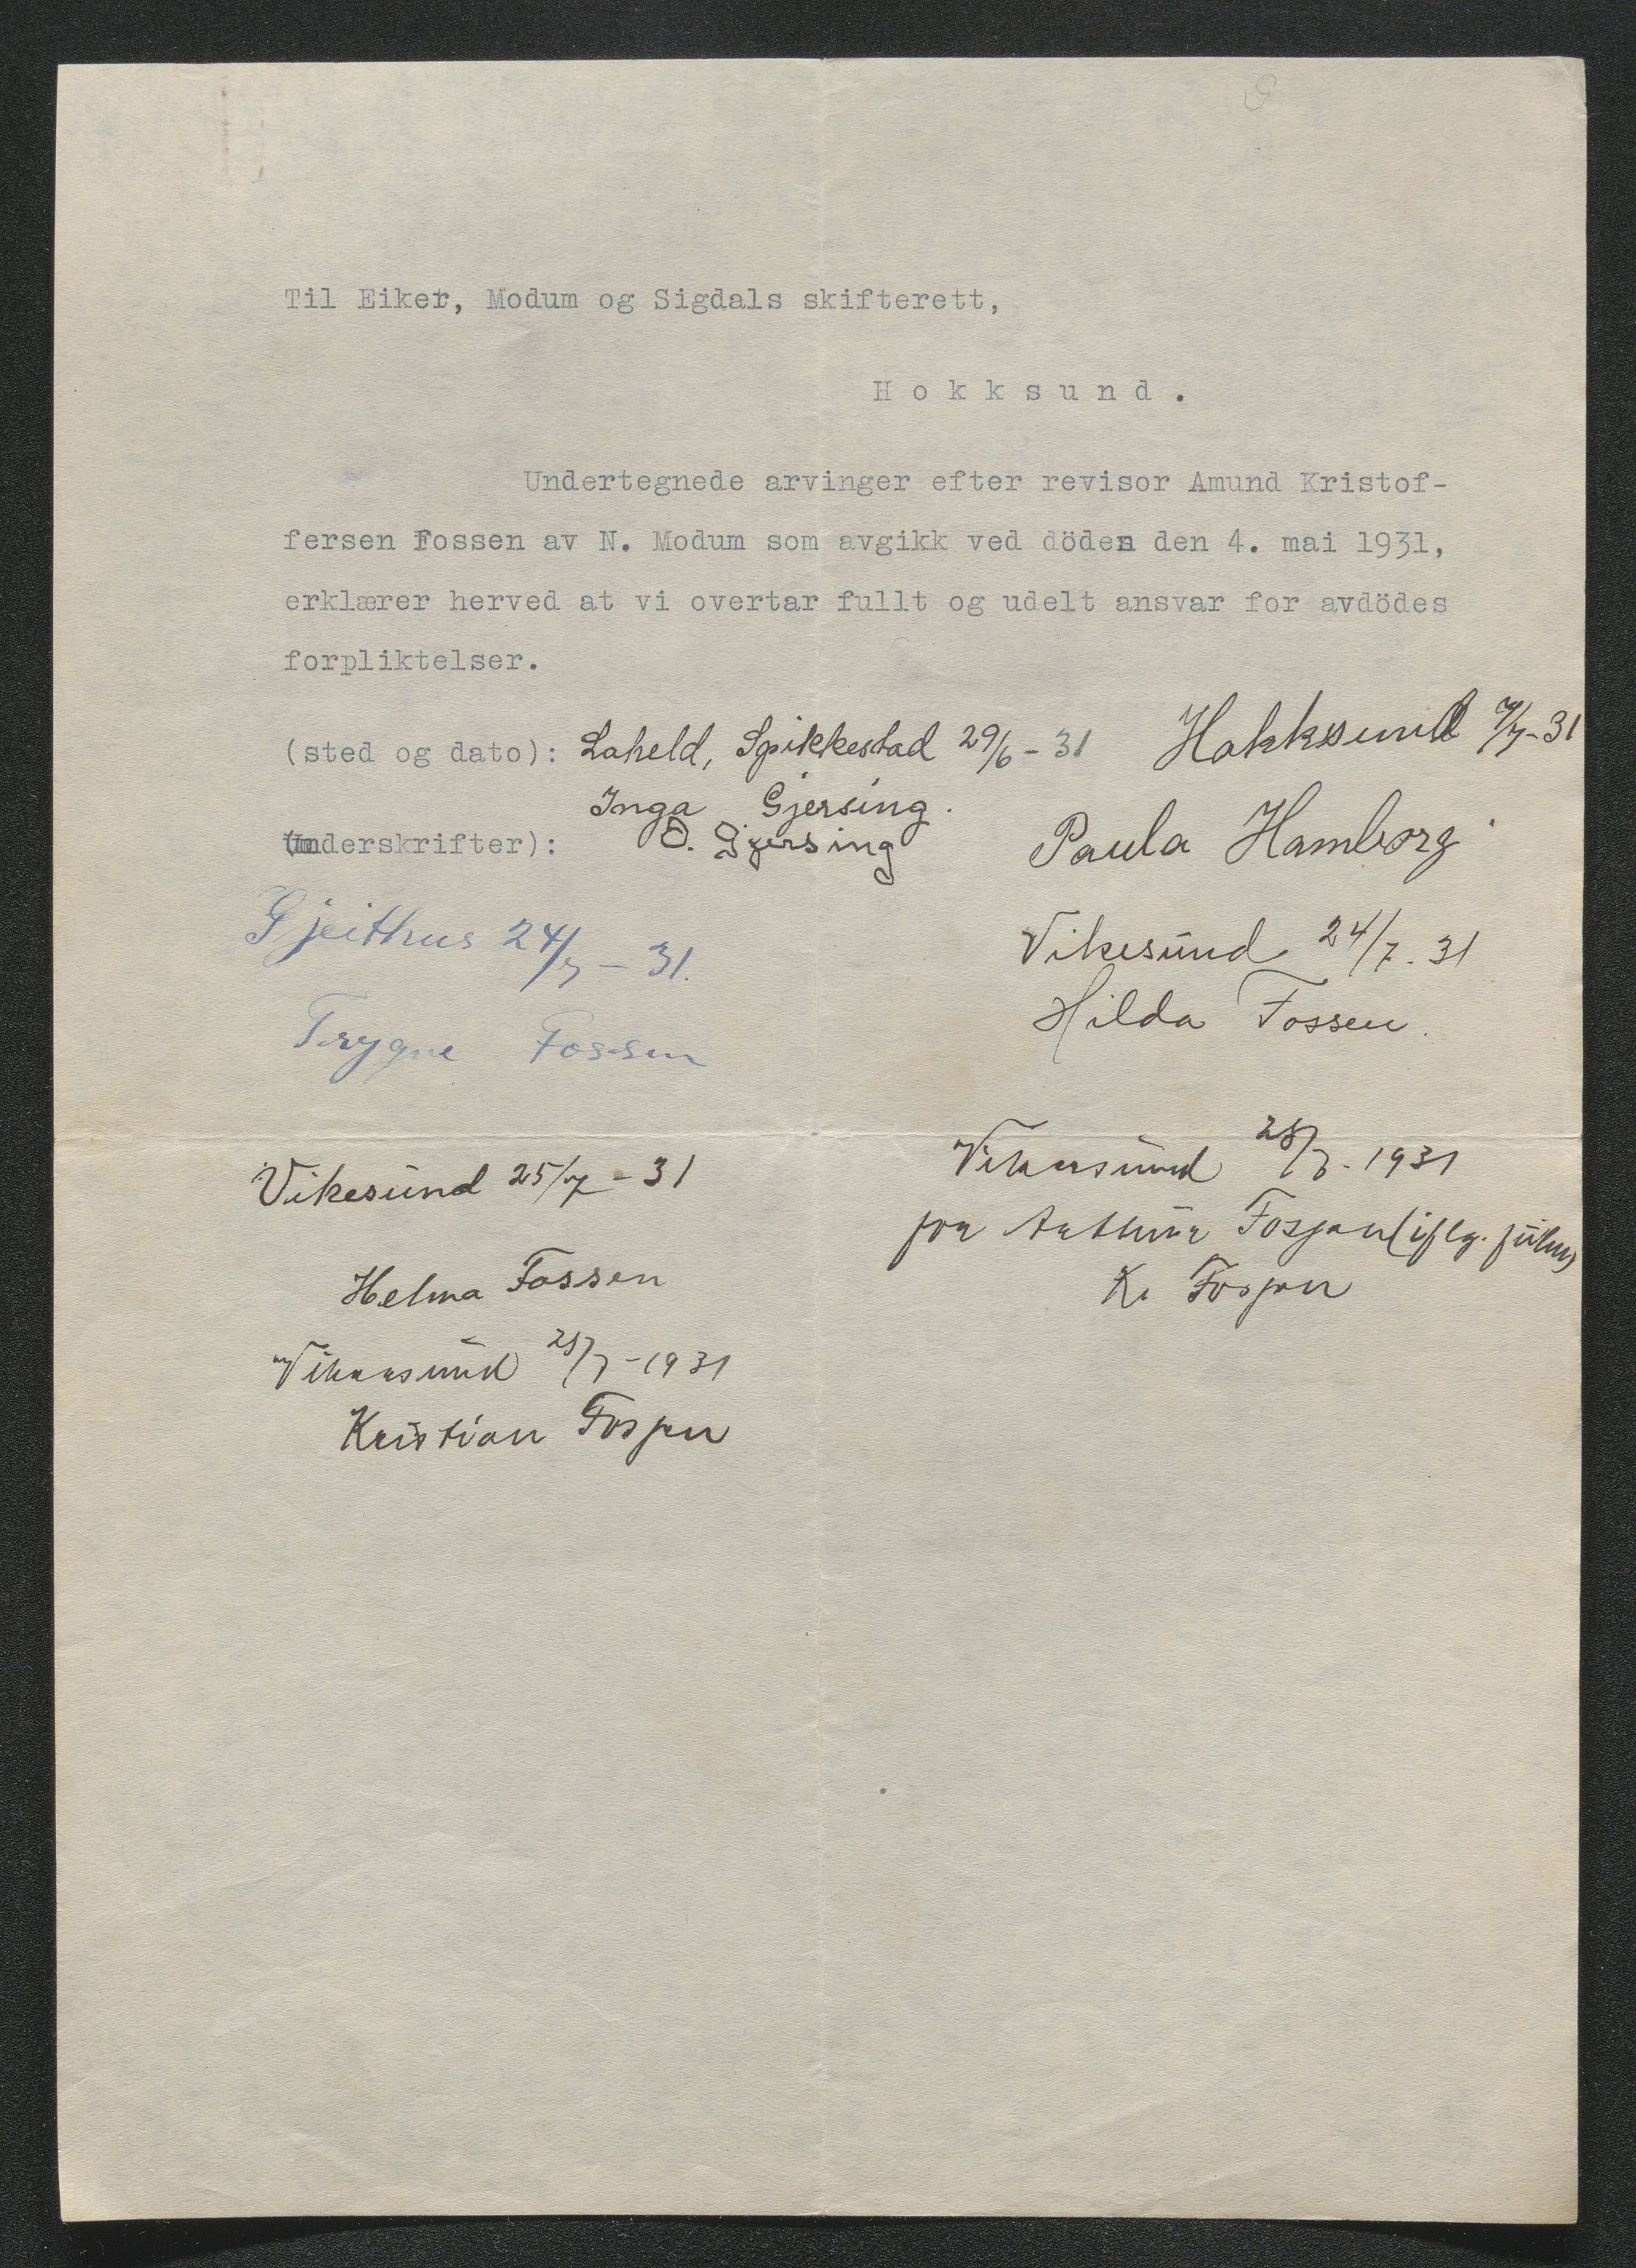 Til Eiker, Modum og Sigdals skifterett,
Hokksund.
Undertegnede arvinger efter revisor Amund Kristof-
fersen Fossen av N. Modum som avgikk ved döden den 4. mai 1931,
erklærer herved at vi overtar fullt og udelt ansvar for avdödes
forpliktelser.
(sted og dato): Laheld, Spikkestad 29/6 - 31
Hokksund 7/7-31
Inga Gjersing.
(underskrifter): O. Gjersing
Paula Hamborg
Gjeithus 24/7 - 31.
Vikesund 24/7. 31
Trygve Fossen
Hilda Fossen.
Vikesund 25/7 - 31
Vikersund 28/7 - 1931
Helma Fossen
for Fossen (iflg.
K. Fossen
Vikersund 28/7 - 1931
Kristian Fossen